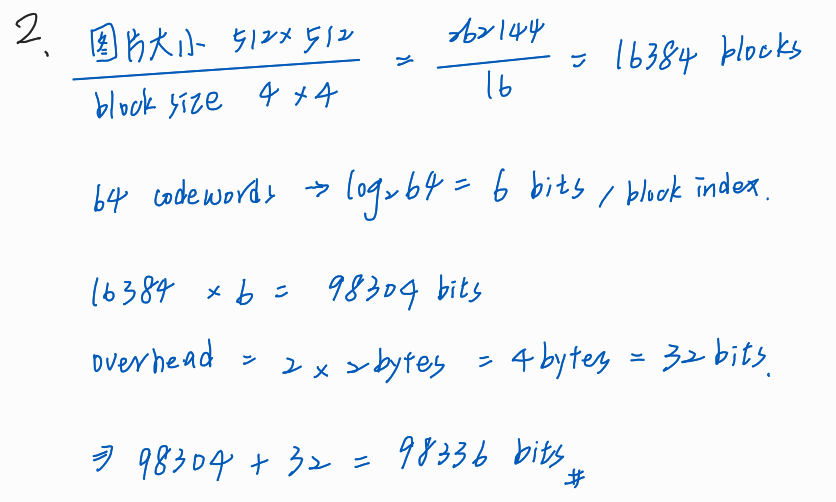 2. 图片大小 512×512 / block size 4×4 = 262144 / 16 = 16384 blocks
64 codewords → log₂64 = 6 bits / block index.
16384 × 6 = 98304 bits
overhead = 2 × 2bytes = 4bytes = 32 bits.
⇒ 98304 + 32 = 98336 bits #